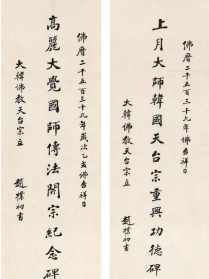 佛曆二千五百三十九年佛吉祥日
上月大師韓國天台宗重興功德碑
大韓佛教天台宗立
趙樸初書
佛曆二千五百三十九年歲次乙亥佛吉祥日
高麗大覺國師傳法開宗紀念碑
大韓佛教天台宗立
趙樸初書